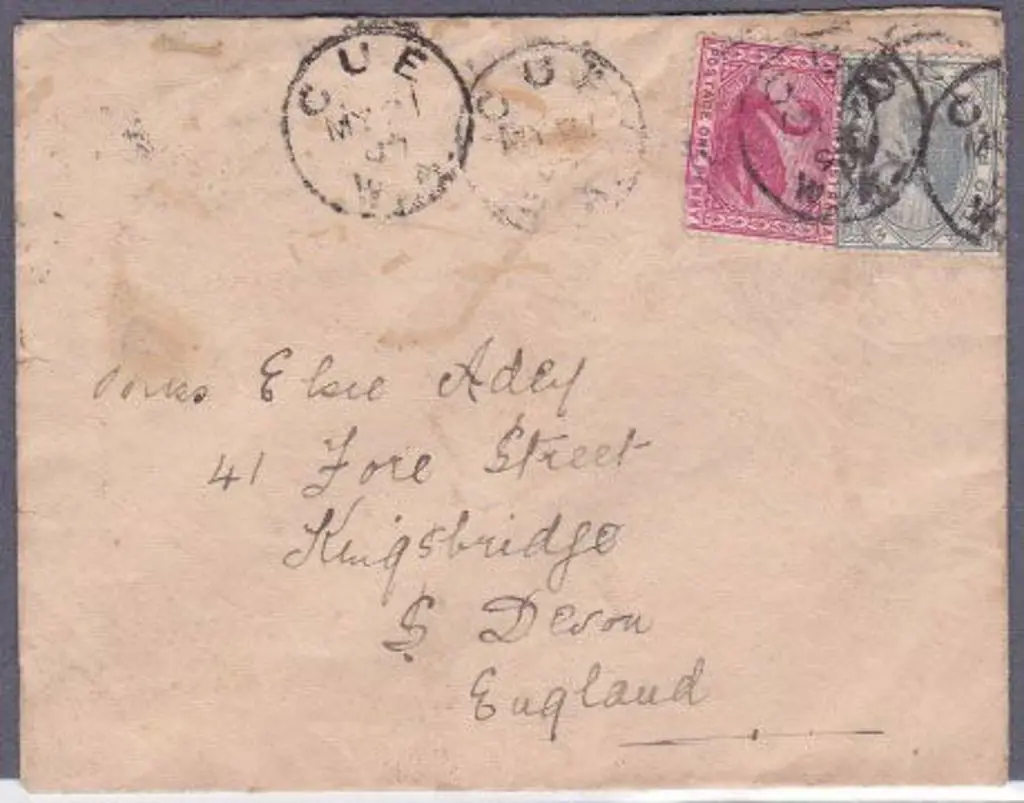 CUE
MY 21
W.A.
CUE
POSTAGE ONE PENNY
Miss Elsie Adey
41 Fore Street
Kingsbridge
S Devon
England